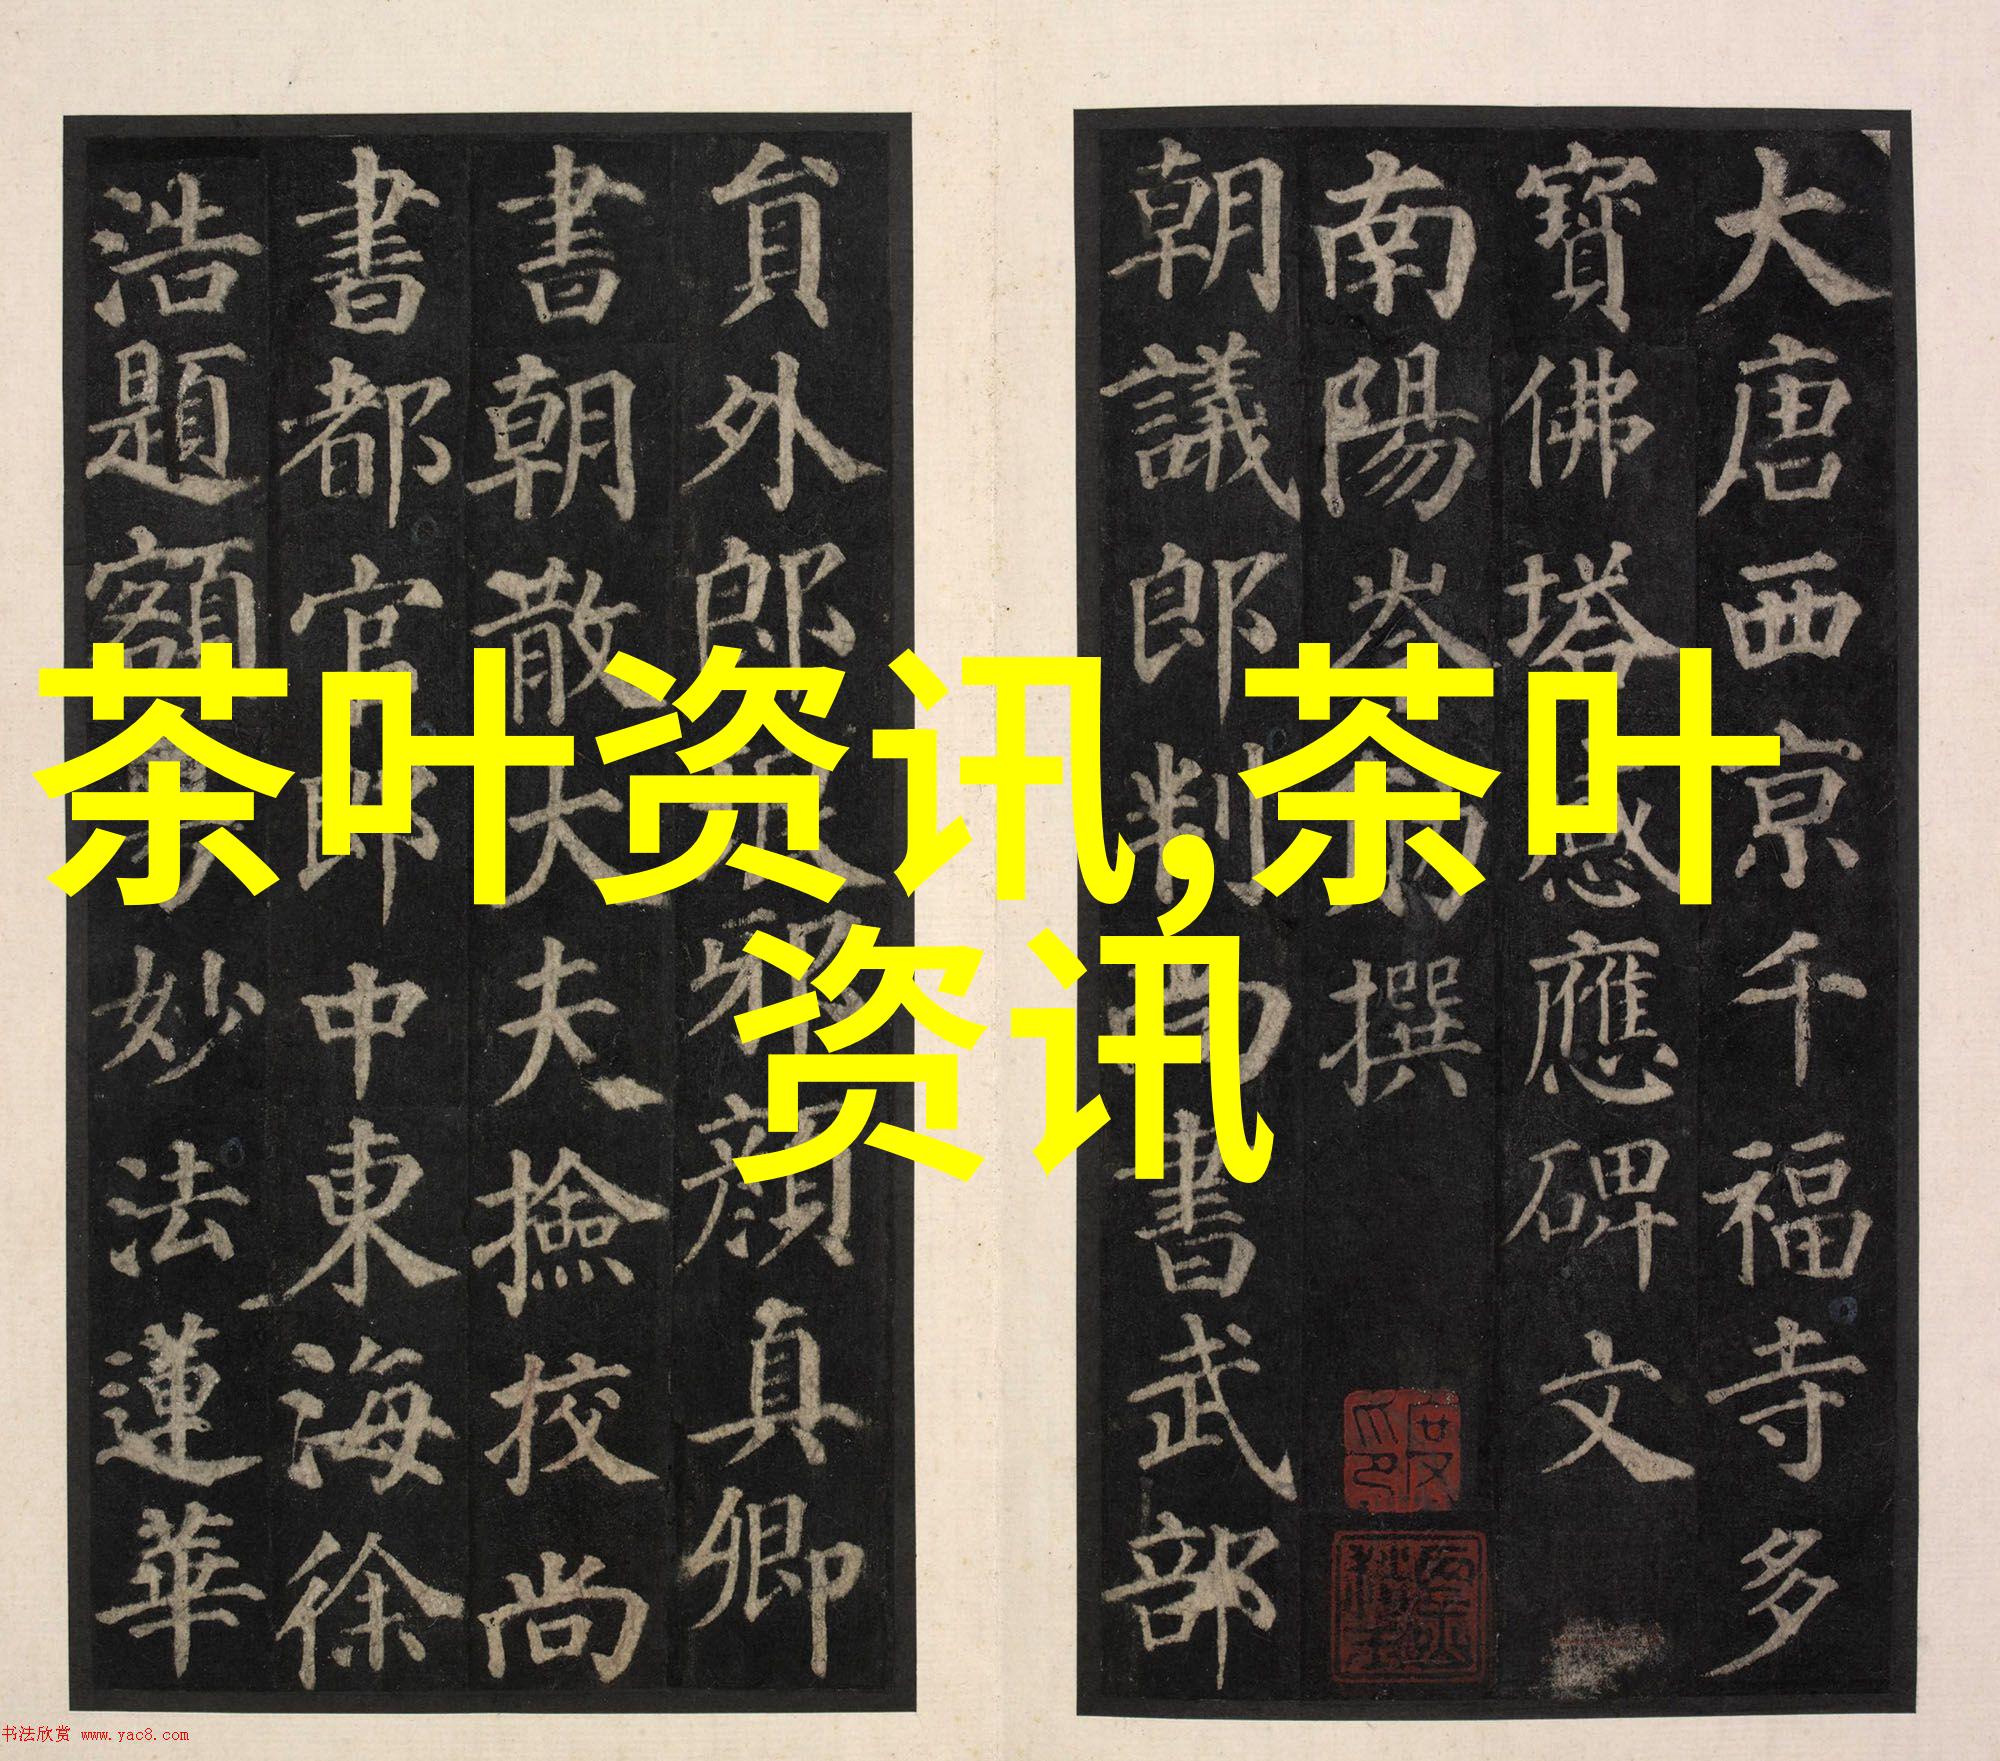 大唐西京千福寺多
寶佛塔感應碑文
南陽岑勛撰
朝議郎判尚書武部
貟外郎琅邪顏真卿
書朝散大夫撿校尚
書都官郎中東海徐
浩題額
妙法蓮華
茶叶资讯,茶叶
资讯
书法欣赏 www.yac8.com